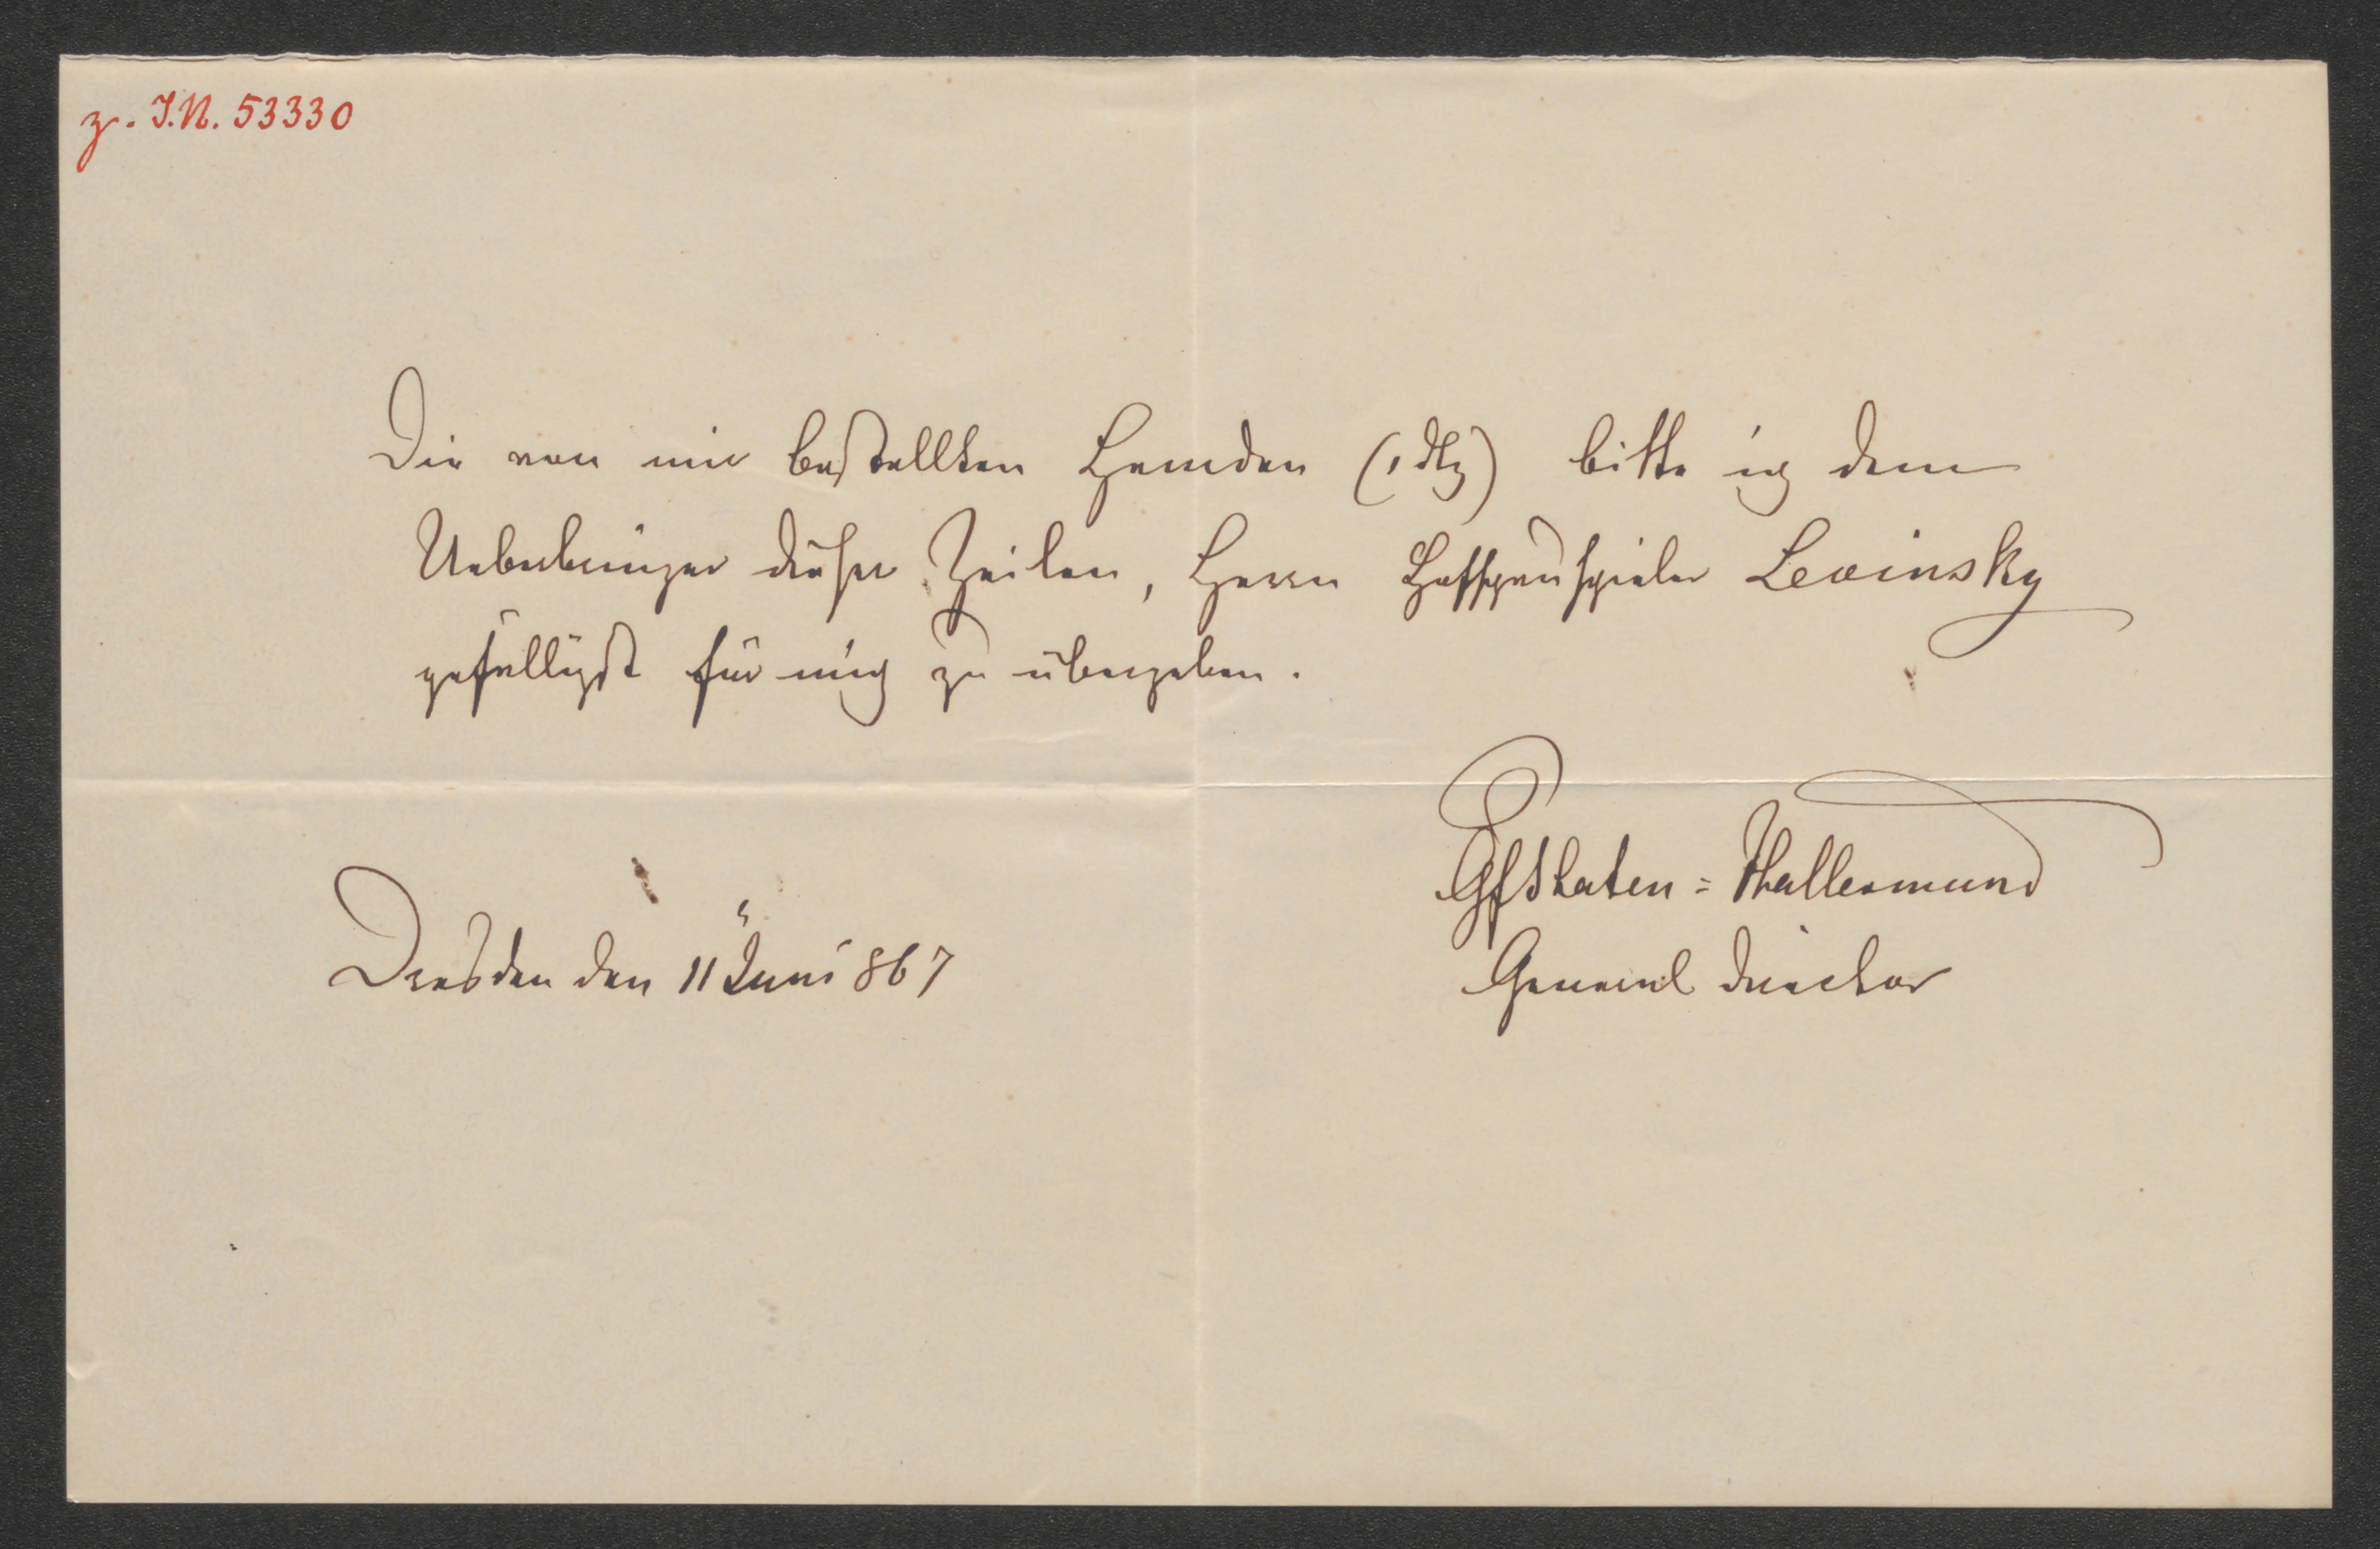 z. I.N. 53330
Die von mir bestellten Hemden (1 dtz) bitte ich dem
Ueberbringer dieser Zeilen, Herrn Hofschauspieler Lewinsky
gefälligst für mich zu übergeben.
Gf Platen=Hallermund
General director
Dresden den 11 Juni 867